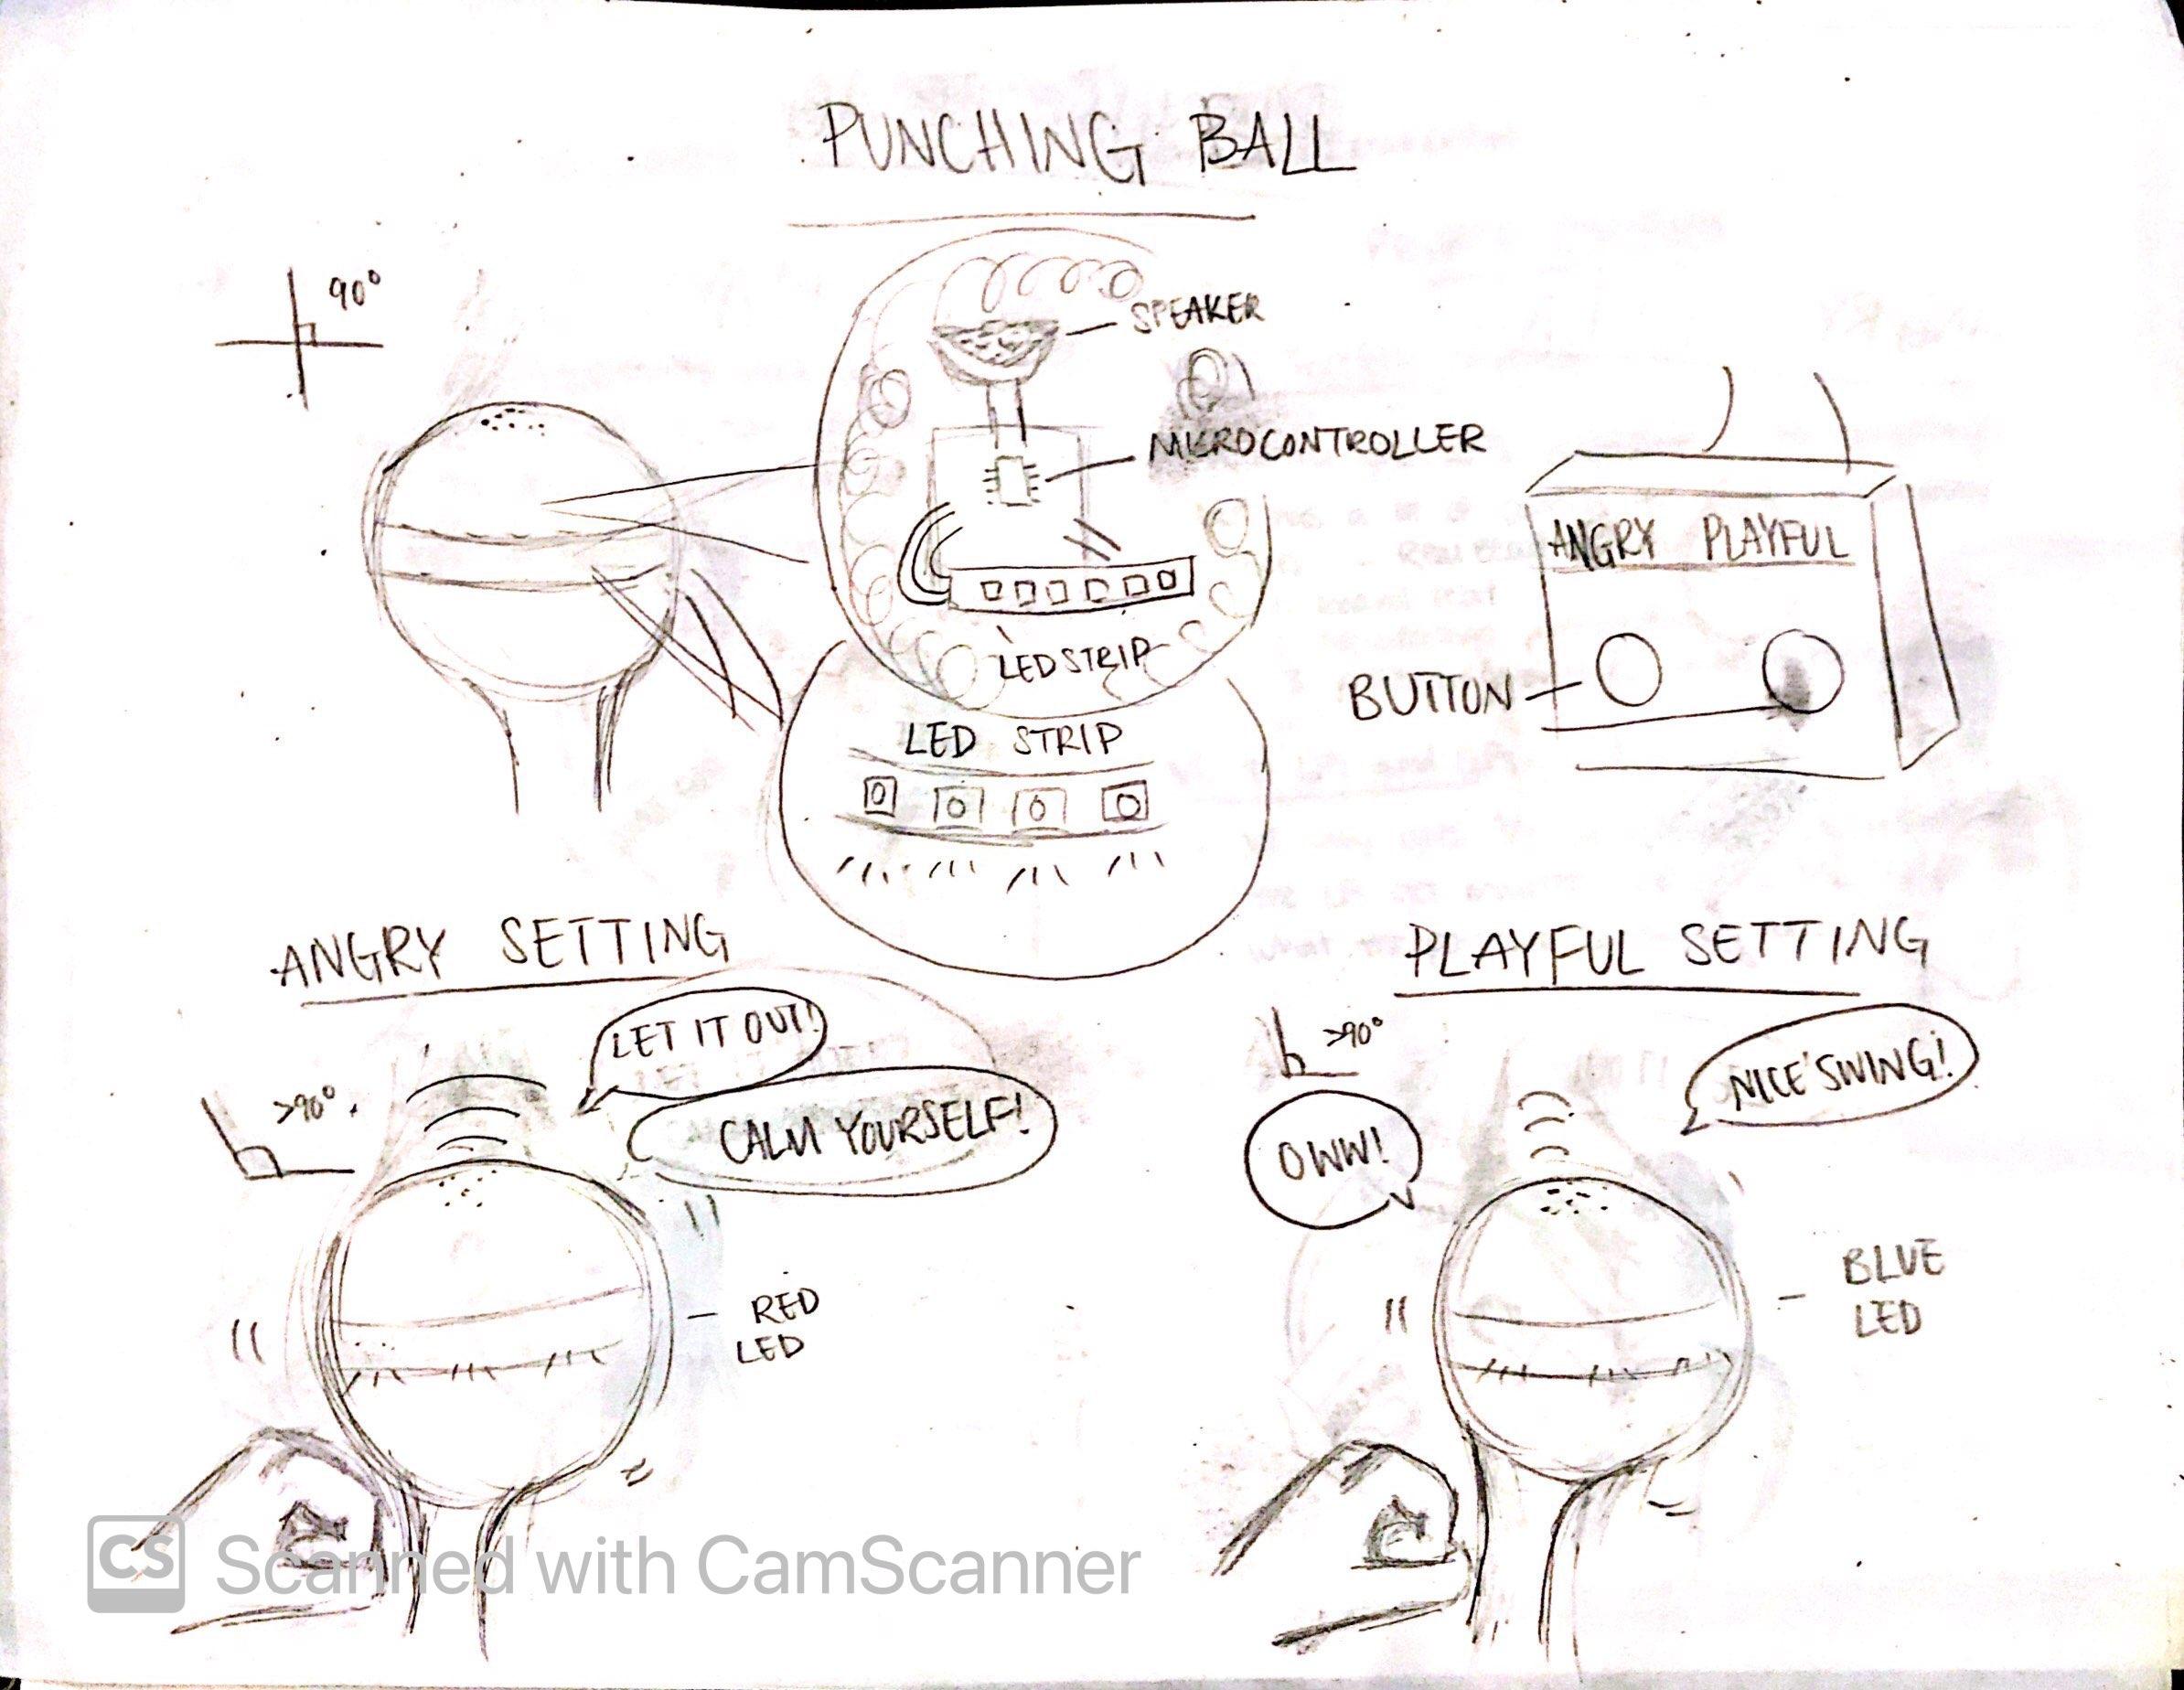 PUNCHING BALL
90°
SPEAKER
MICROCONTROLLER
LED STRIP
ANGRY PLAYFUL
BUTTON
LED STRIP
ANGRY SETTING
PLAYFUL SETTING
LET IT OUT!
CALM YOURSELF!
>90°
>90°
NICE SWING!
OWW!
RED
LED
BLUE
LED
CS Scanned with CamScanner